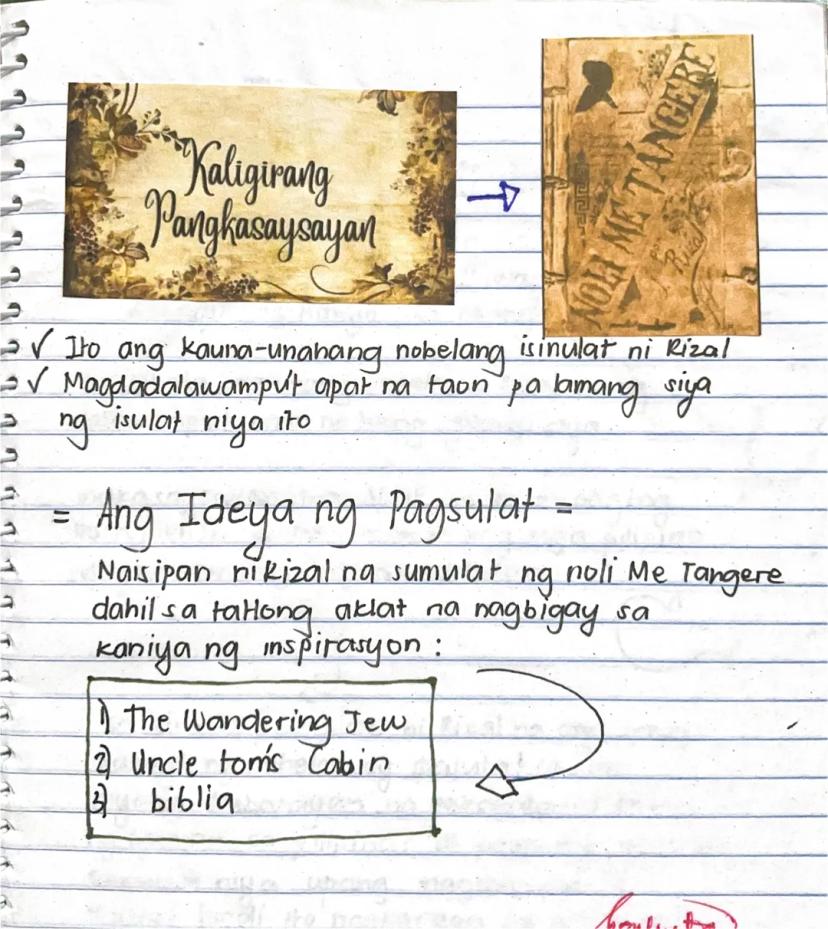 Kaligirang
Pangkasaysayan
NOLI ME TANGERE
Rizal
✓ Ito ang kauna-unahang nobelang isinulat ni Rizal
✓ Magdadalawampu't apat na taon pa lamang siya
ng isulat niya ito
= Ang Ideya ng Pagsulat =
Naisipan ni Rizal na sumulat ng noli Me Tangere
dahil sa tatlong aklat na nagbigay sa
kaniya ng inspirasyon :
1) The Wandering Jew
2) Uncle tom's Cabin
3) biblia